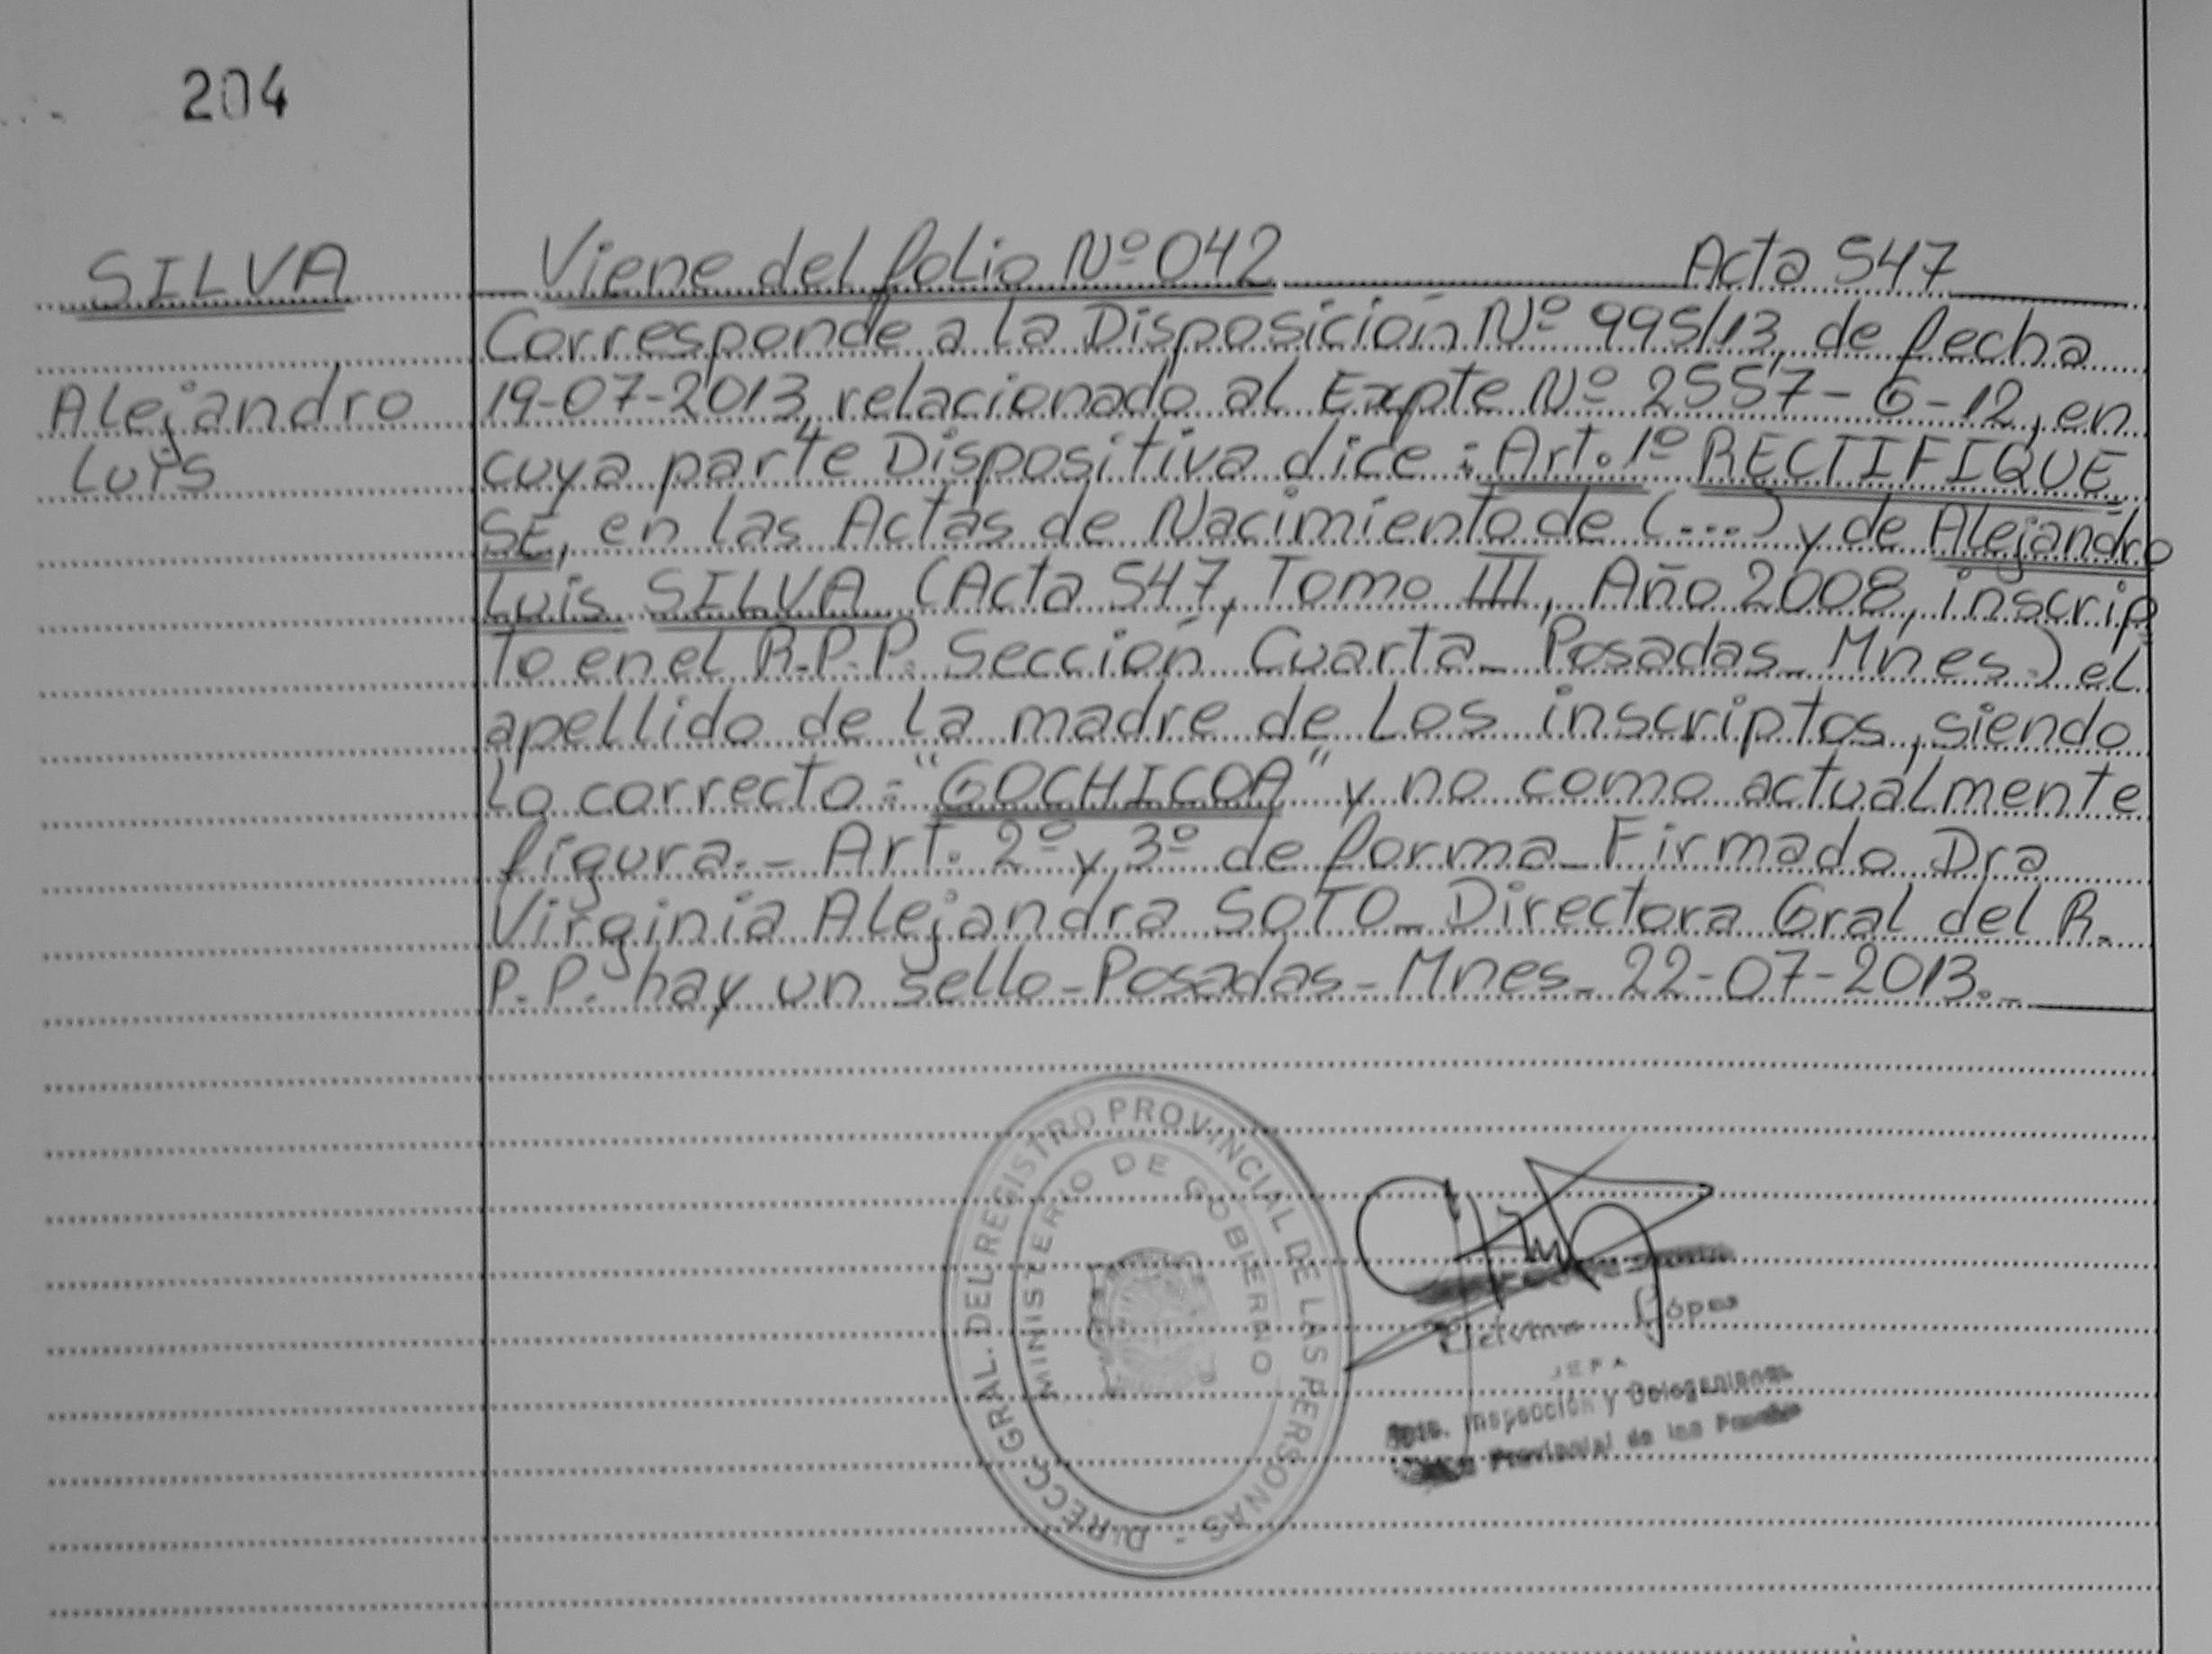 204
SILVA
Alejandro
Luis
Viene del folio Nº 042 Acta 547
Corresponde a la Disposición Nº 995/13, de fecha
19-07-2013, relacionado al Expte Nº 2557-G-12, en
cuya parte Dispositiva dice: Art. 1º RECTIFIQUE
SE, en las Actas de Nacimiento de (...) y de Alejandro
Luis SILVA (Acta 547, Tomo III, Año 2008, inscrip
to en el R.P.P. Sección Cuarta_ Posadas_ Mnes.) el
apellido de la madre de los inscriptos, siendo
lo correcto: "GOCHICOA" y no como actualmente
figura._ Art. 2º y 3º de forma_ Firmado Dra
Virginia Alejandra SOTO_ Directora Gral del R.
P.P. hay un sello_ Posadas_ Mnes_ 22-07-2013._
DIRECC. GRAL. DEL REGISTRO PROVINCIAL DE LAS PERSONAS -
MINISTERIO DE GOBIERNO
López
JEFA
Inspección y Delegaciones
Provincial de las